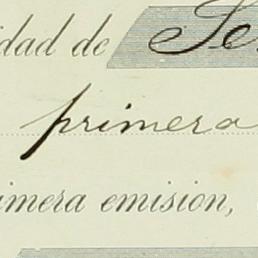 idad de Se
primera
imera emision,